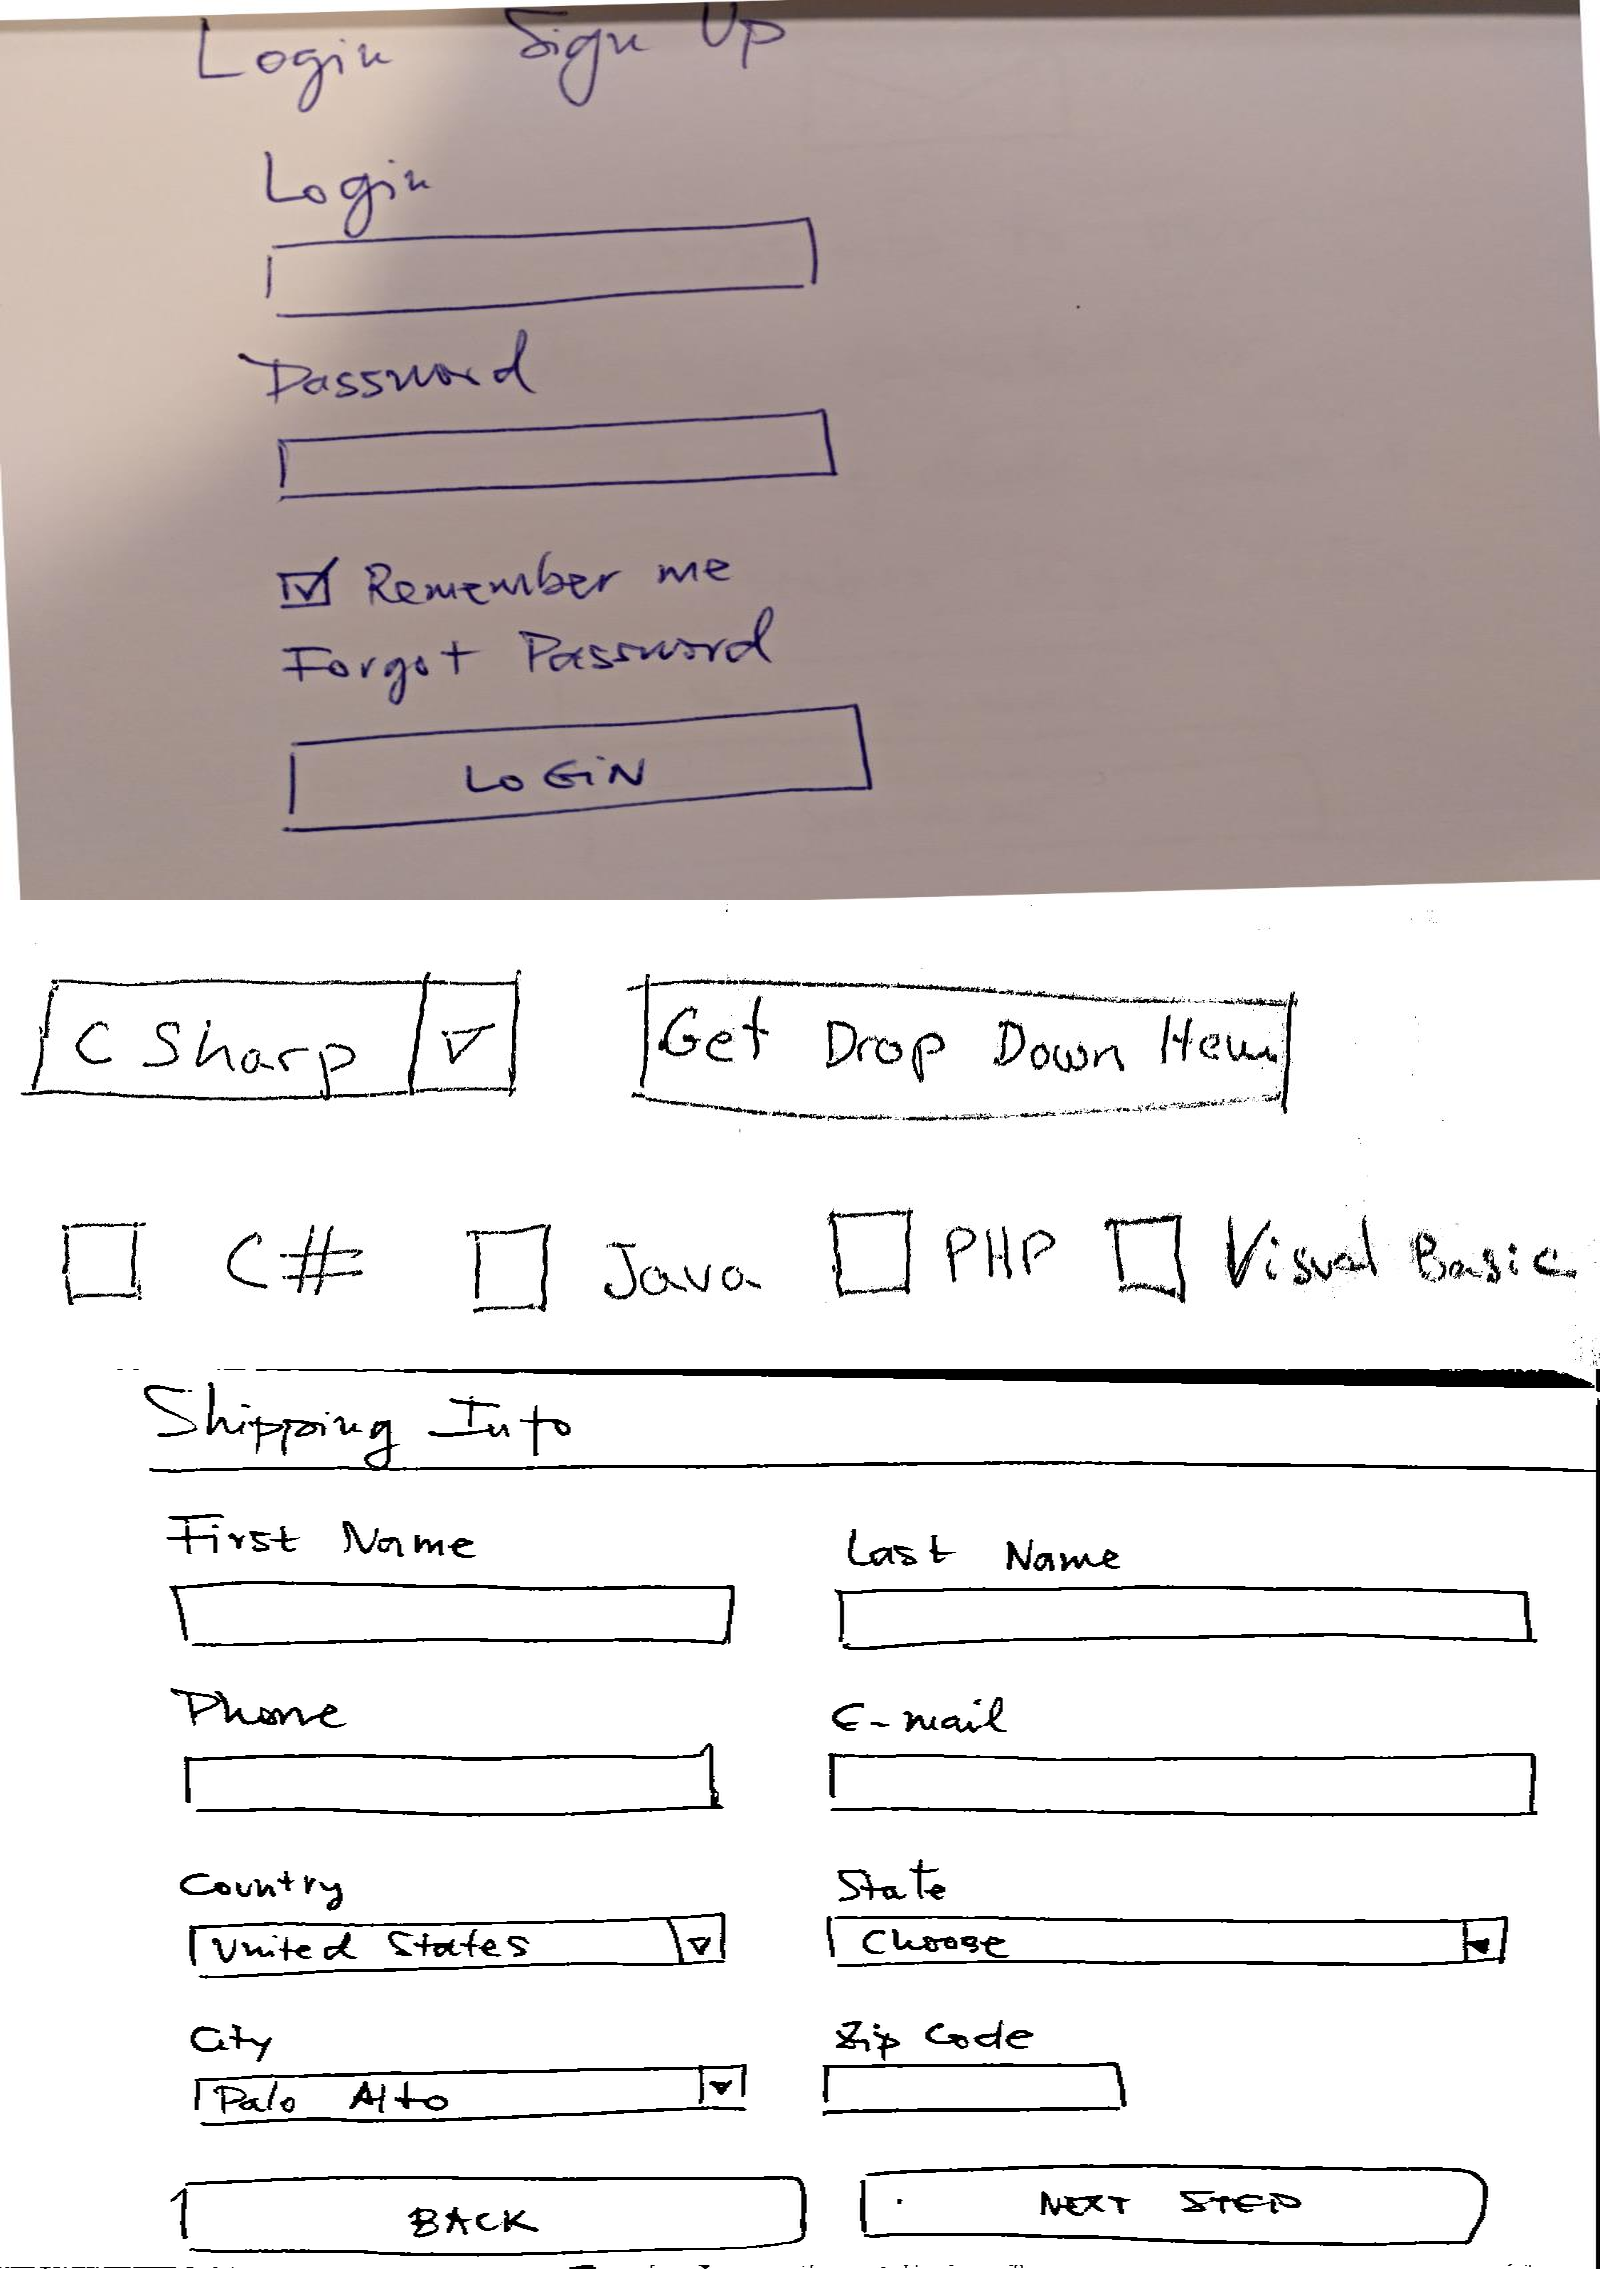 Login Sign Up
Login
Password
Remember me
Forgot Password
LOGIN
C Sharp Get Drop Down Item
C# Java PHP Visual Basic
Shipping Info
First Name Last Name
Phone E-mail
Country State
United States Choose
City Zip Code
Palo Alto
BACK NEXT STEP